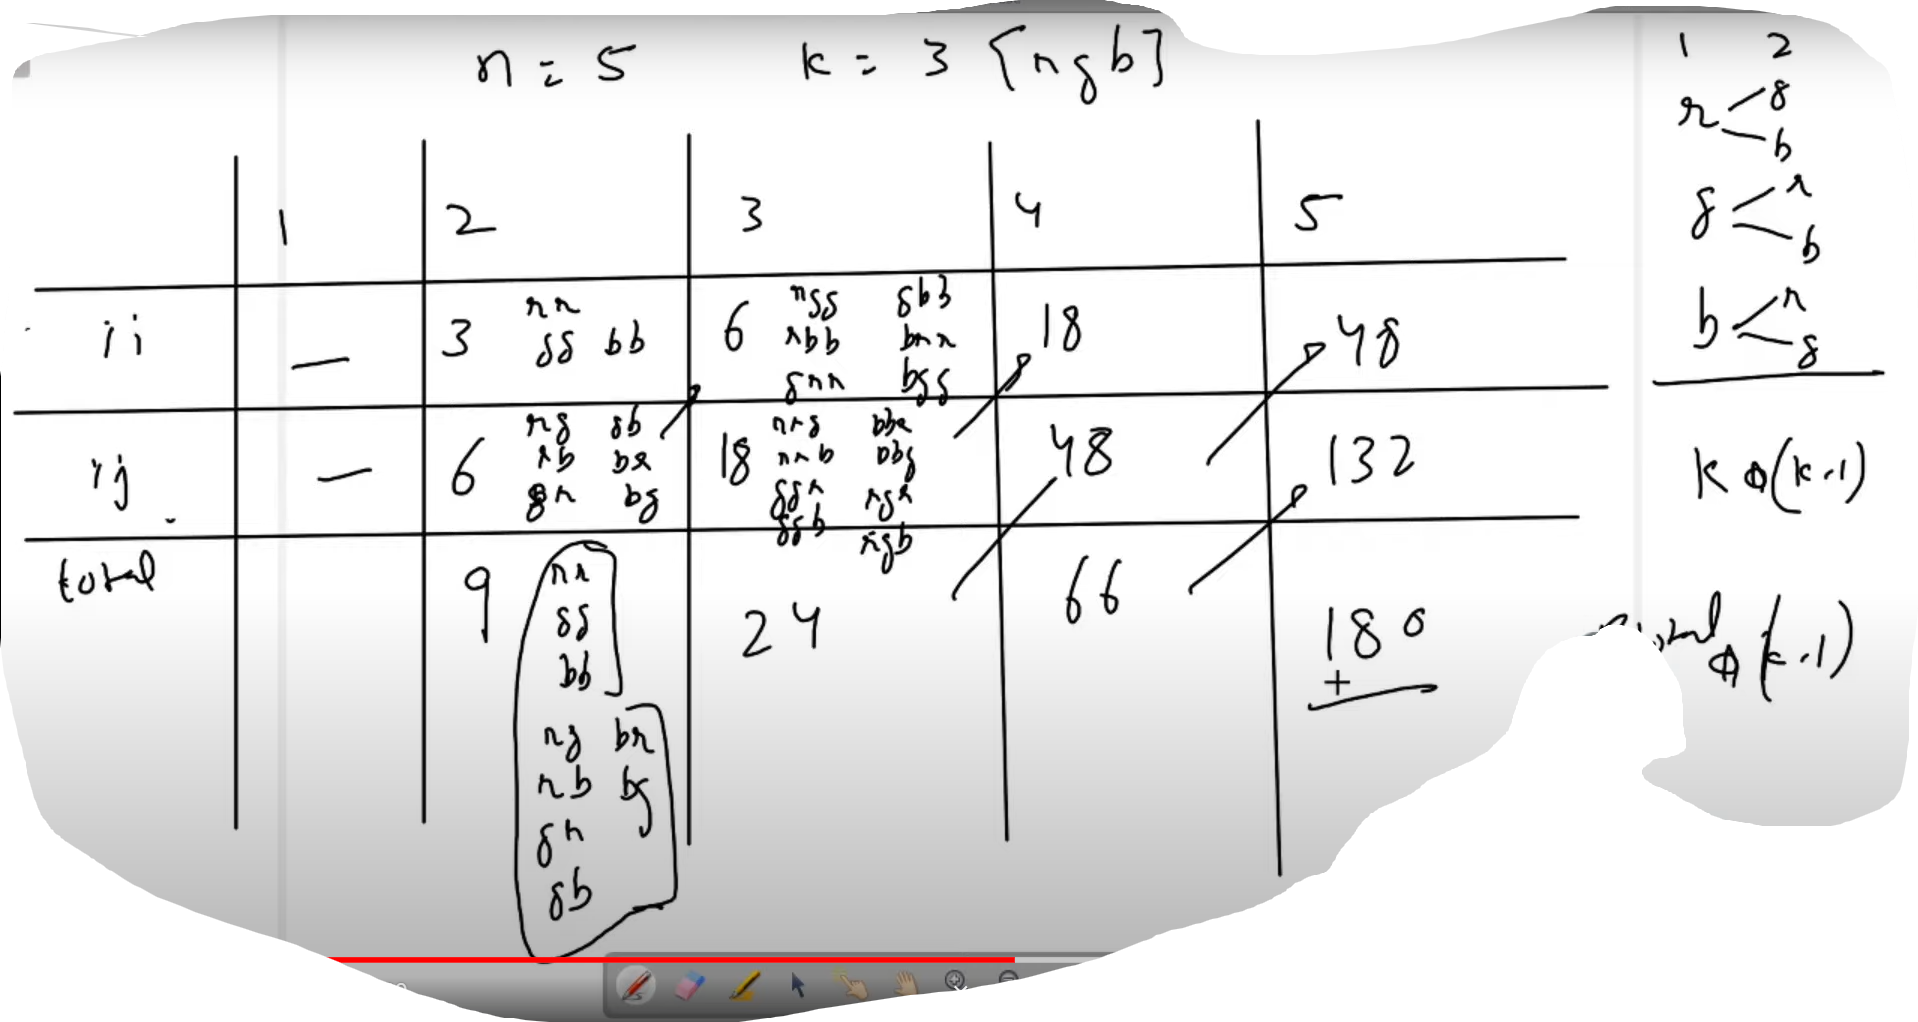 n = 5 k = 3 [r g b]
1 2 3 4 5
ii — 3 rr gg bb 6 rgg rbb grr gbb brr bgg 18 48
ij — 6 rg rb gr gb br bg 18 rrg rrb ggr ggb bbr bbg rgr rgb 48 132
total 9 24 66 180
rr
gg
bb
rg br
rb bg
gr
gb
+
1 2
r g
b
g r
b
b r
g
k * (k-1)
total * (k-1)